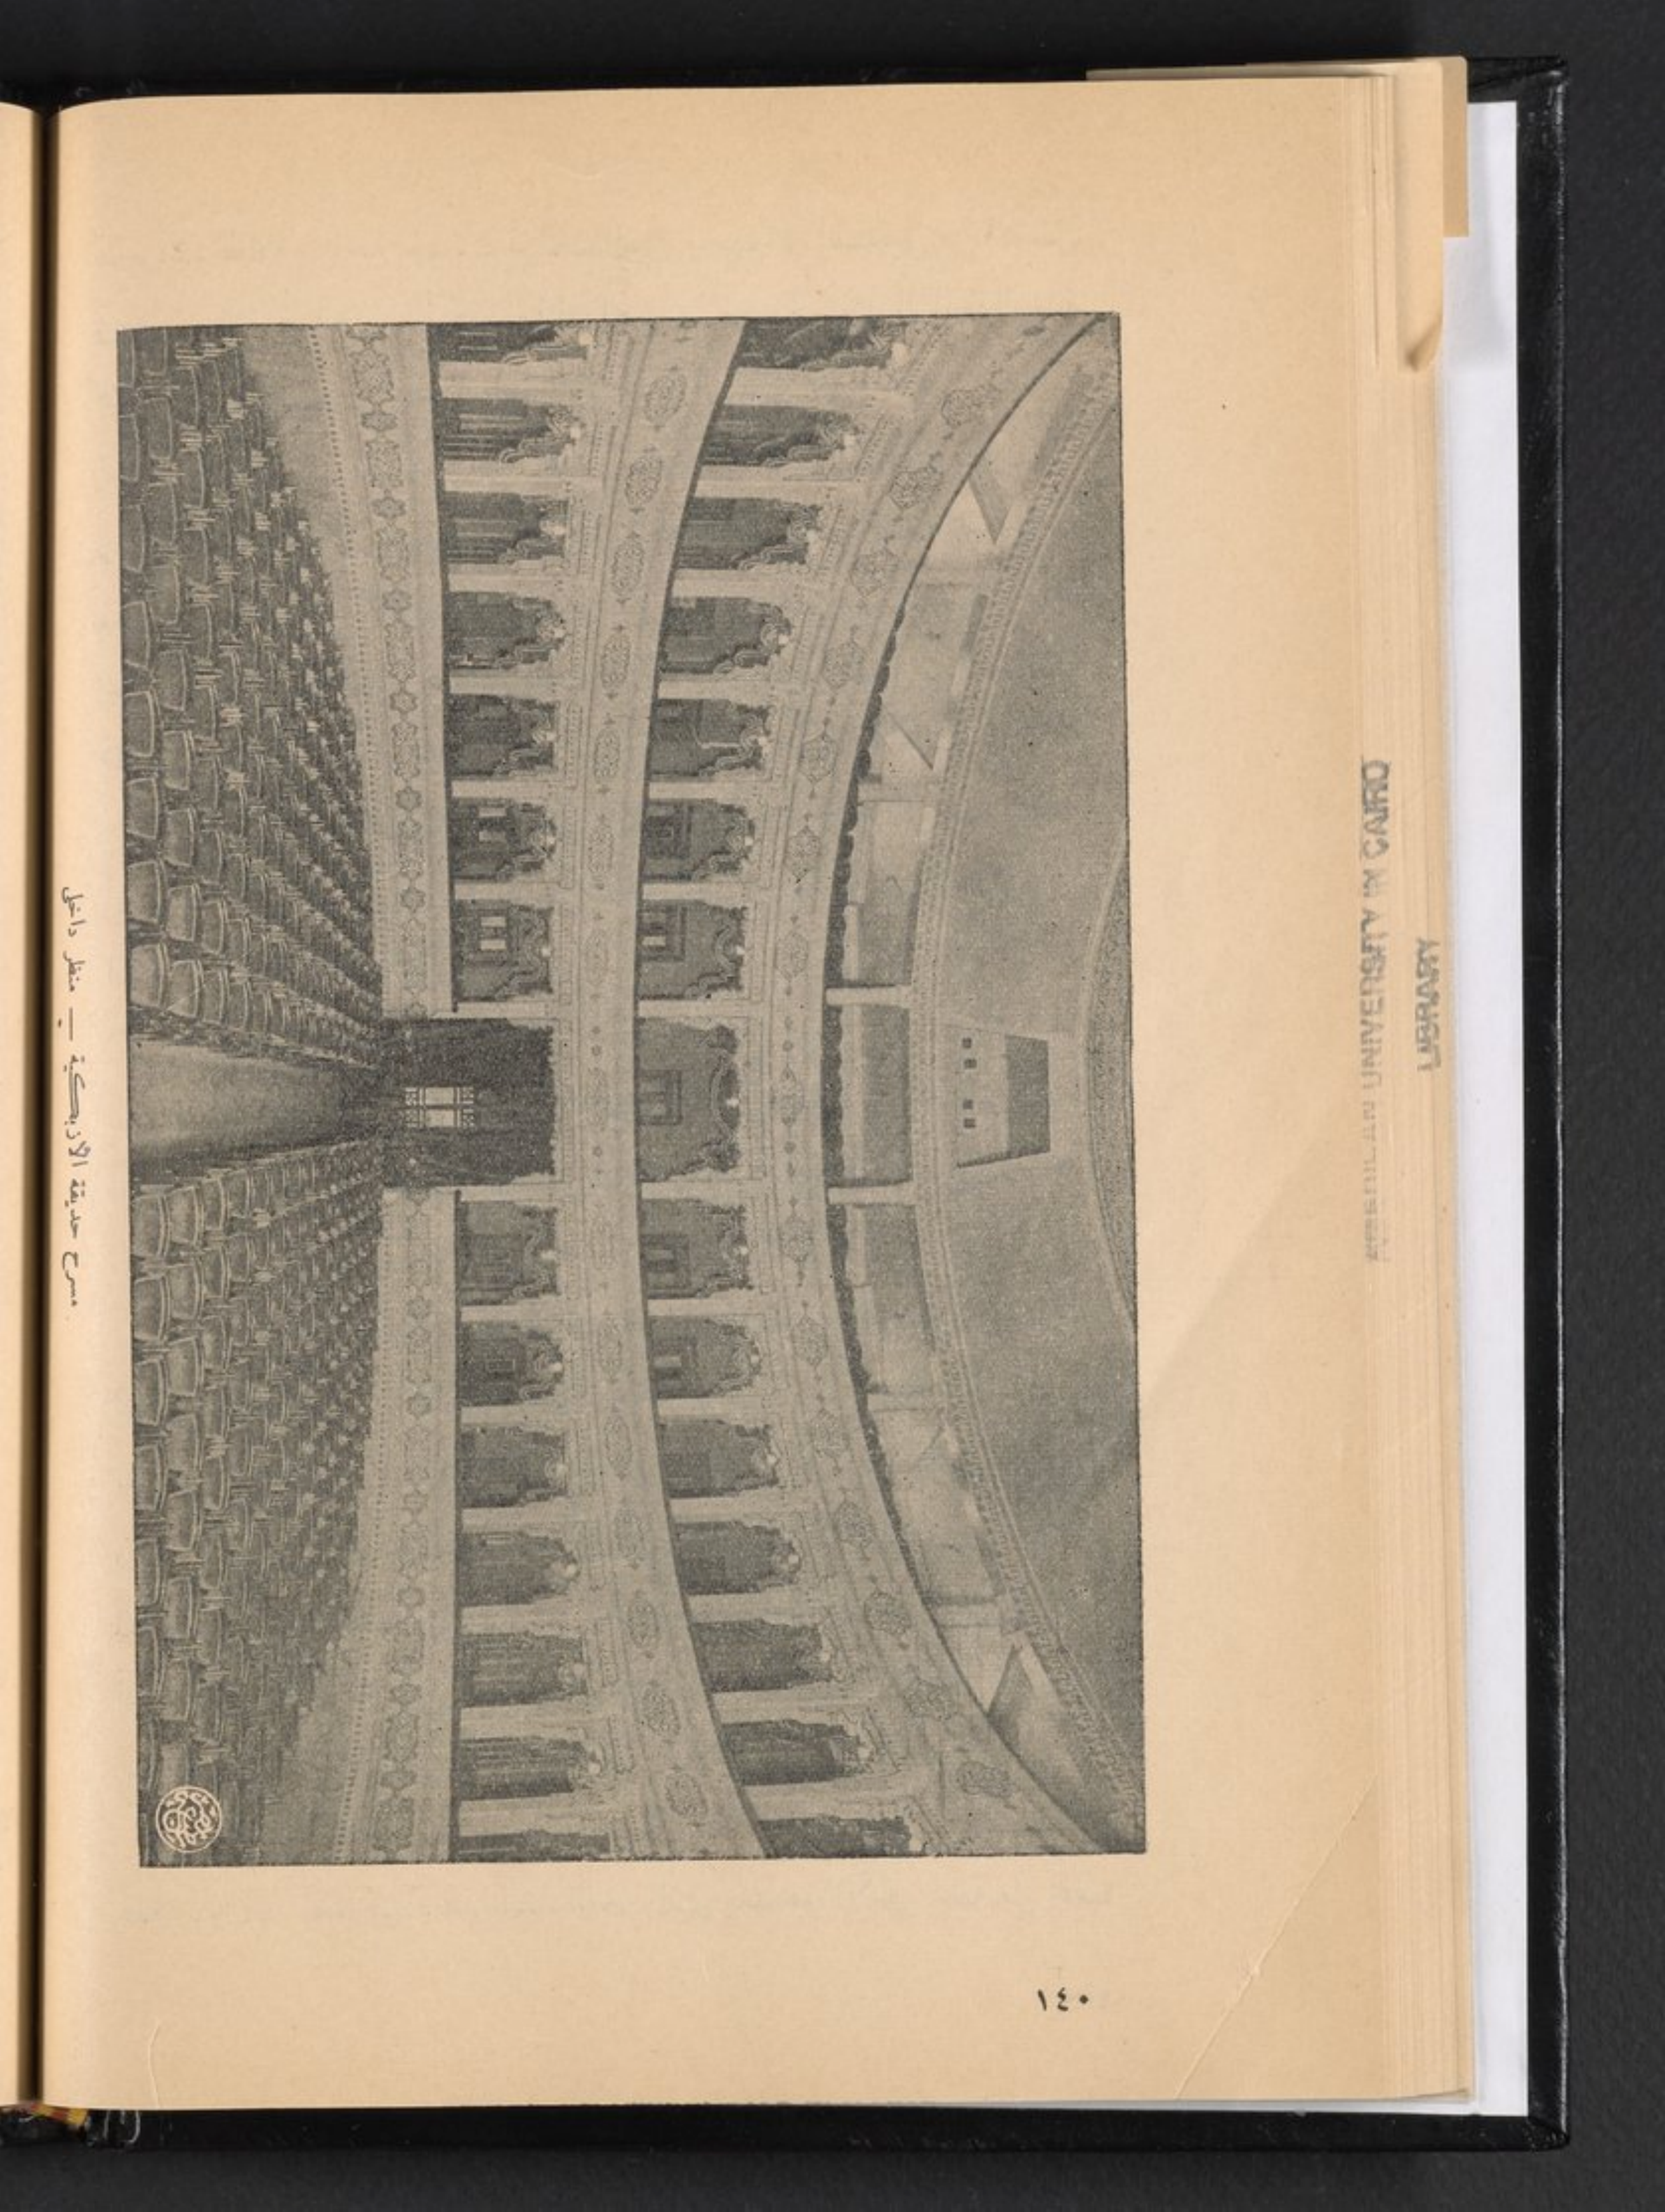 مسرح حديقة الازبكية — منظر داخلى
١٤٠
AMERICAN UNIVERSITY IN CAIRO
LIBRARY